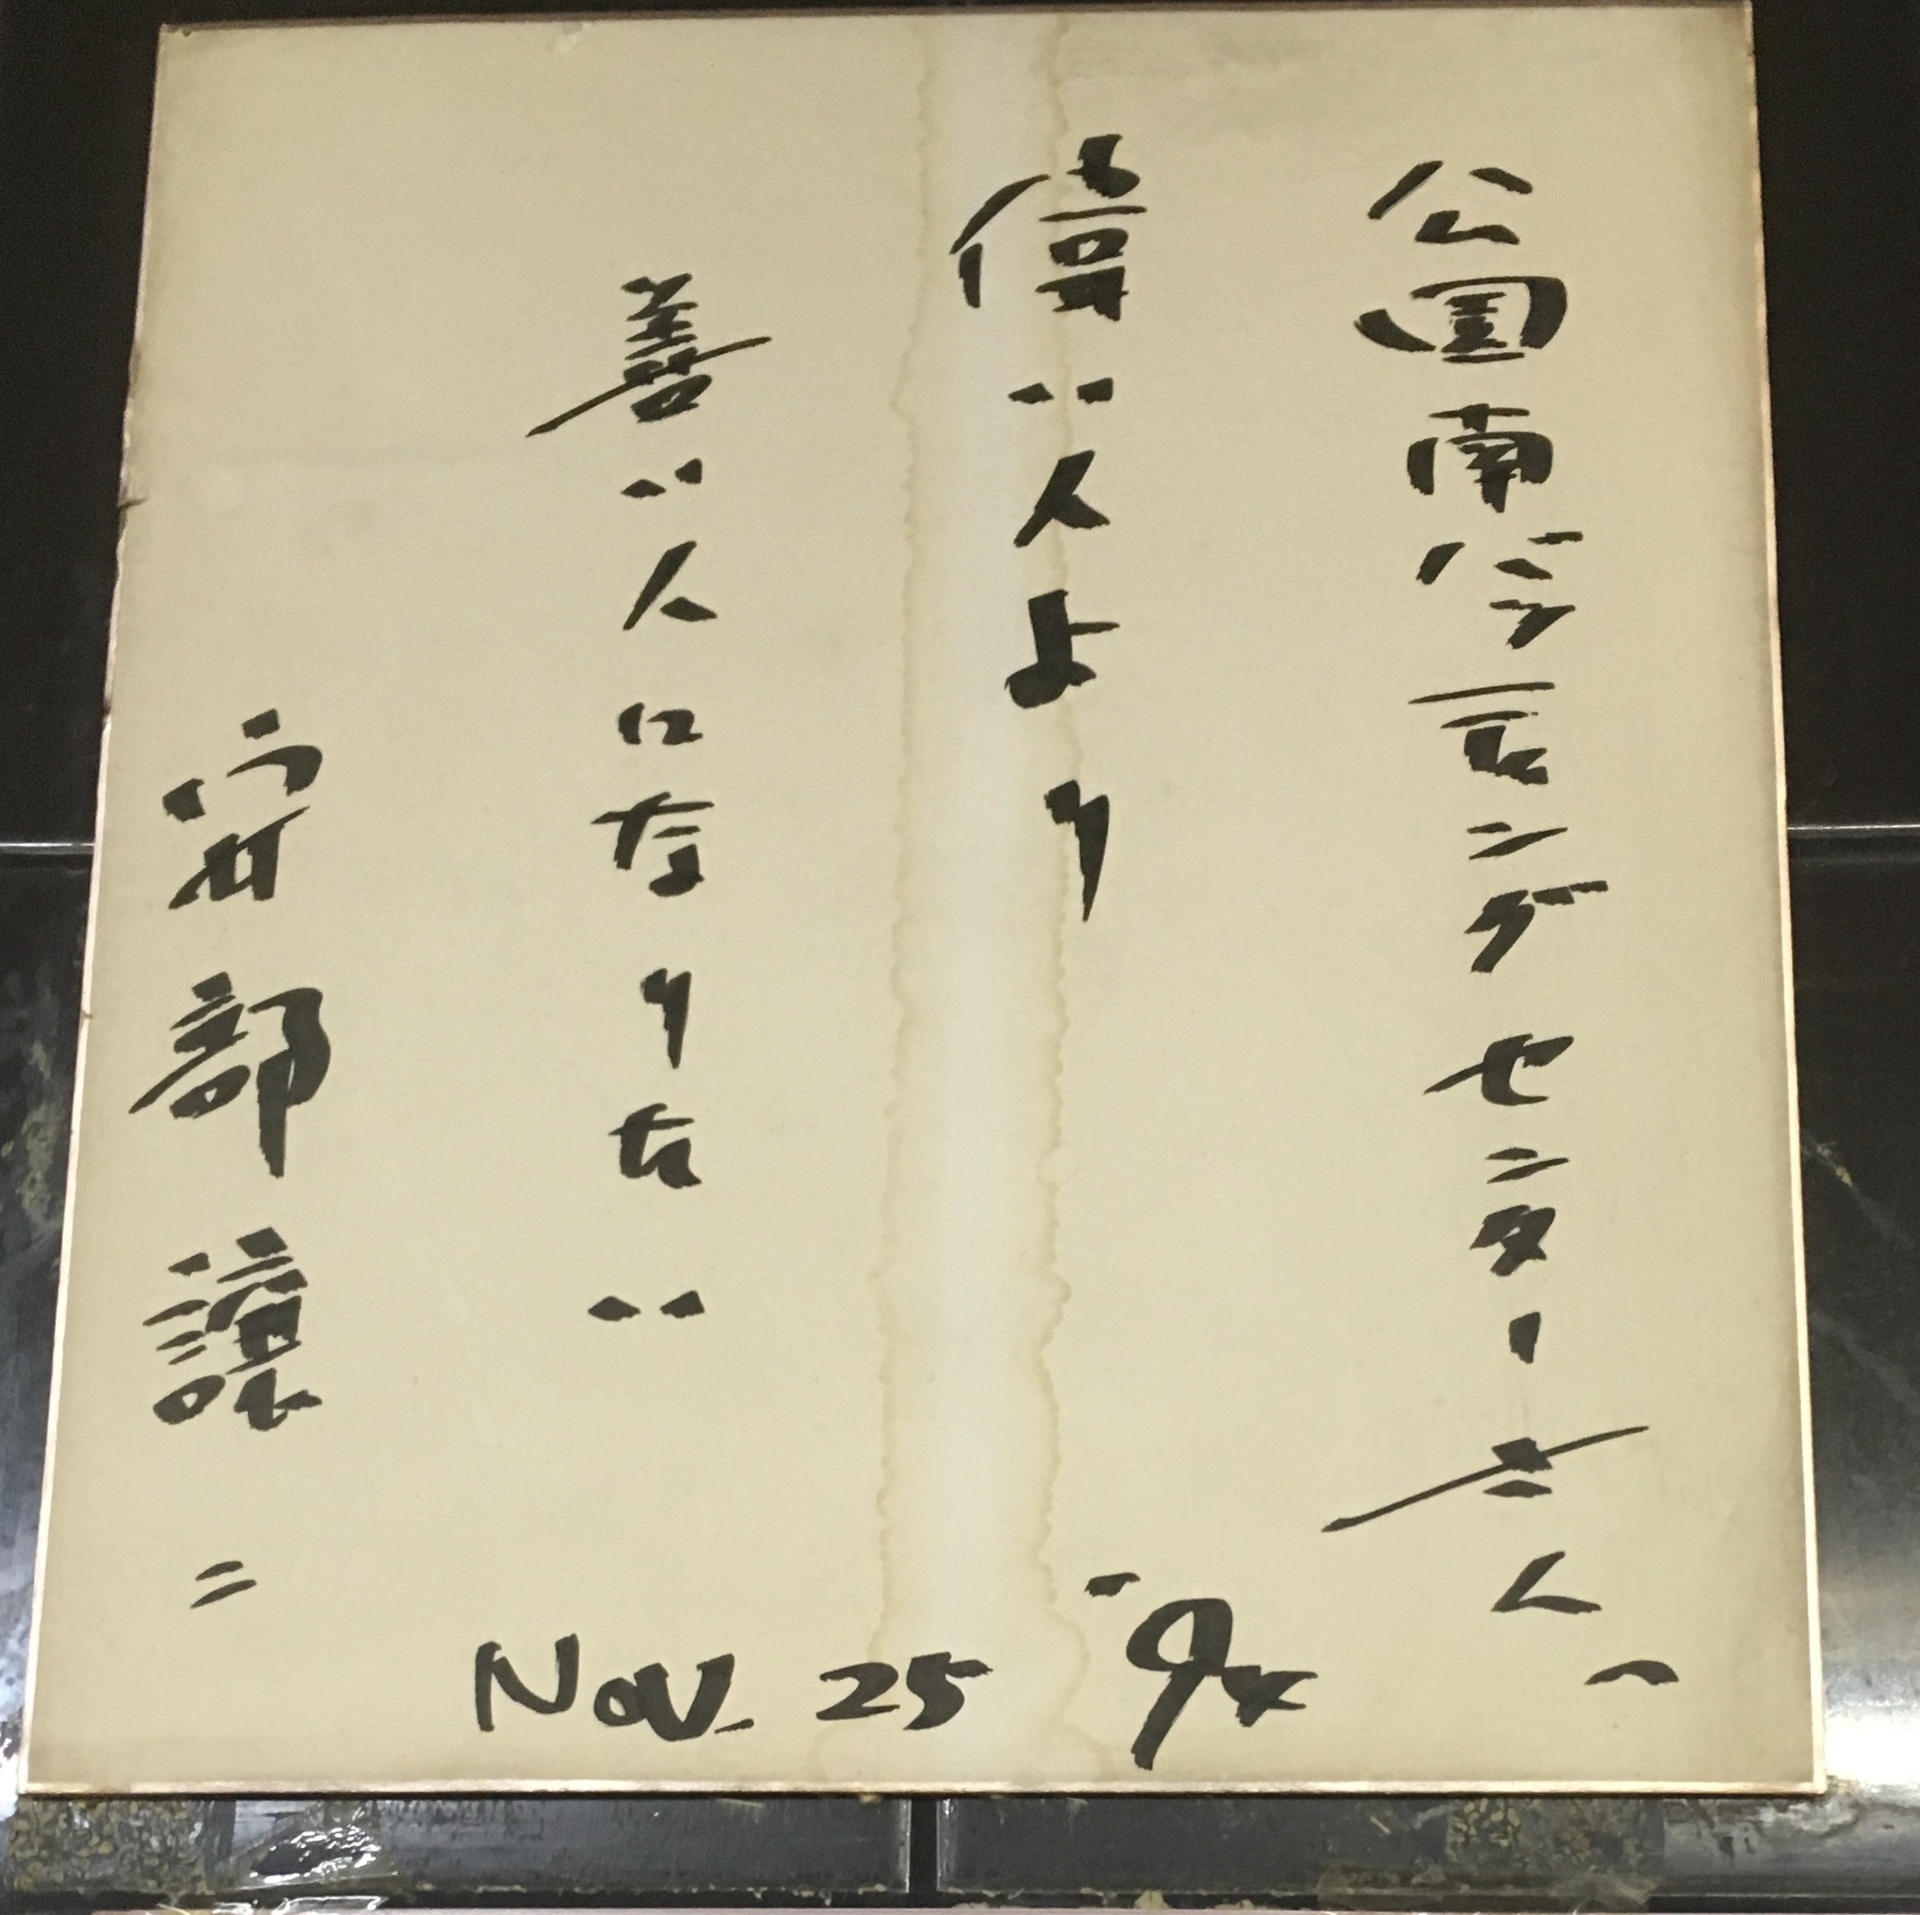 公園南バッティングセンターさんへ
偉い人より
善い人になりたい
安部譲二
Nov. 25 '94